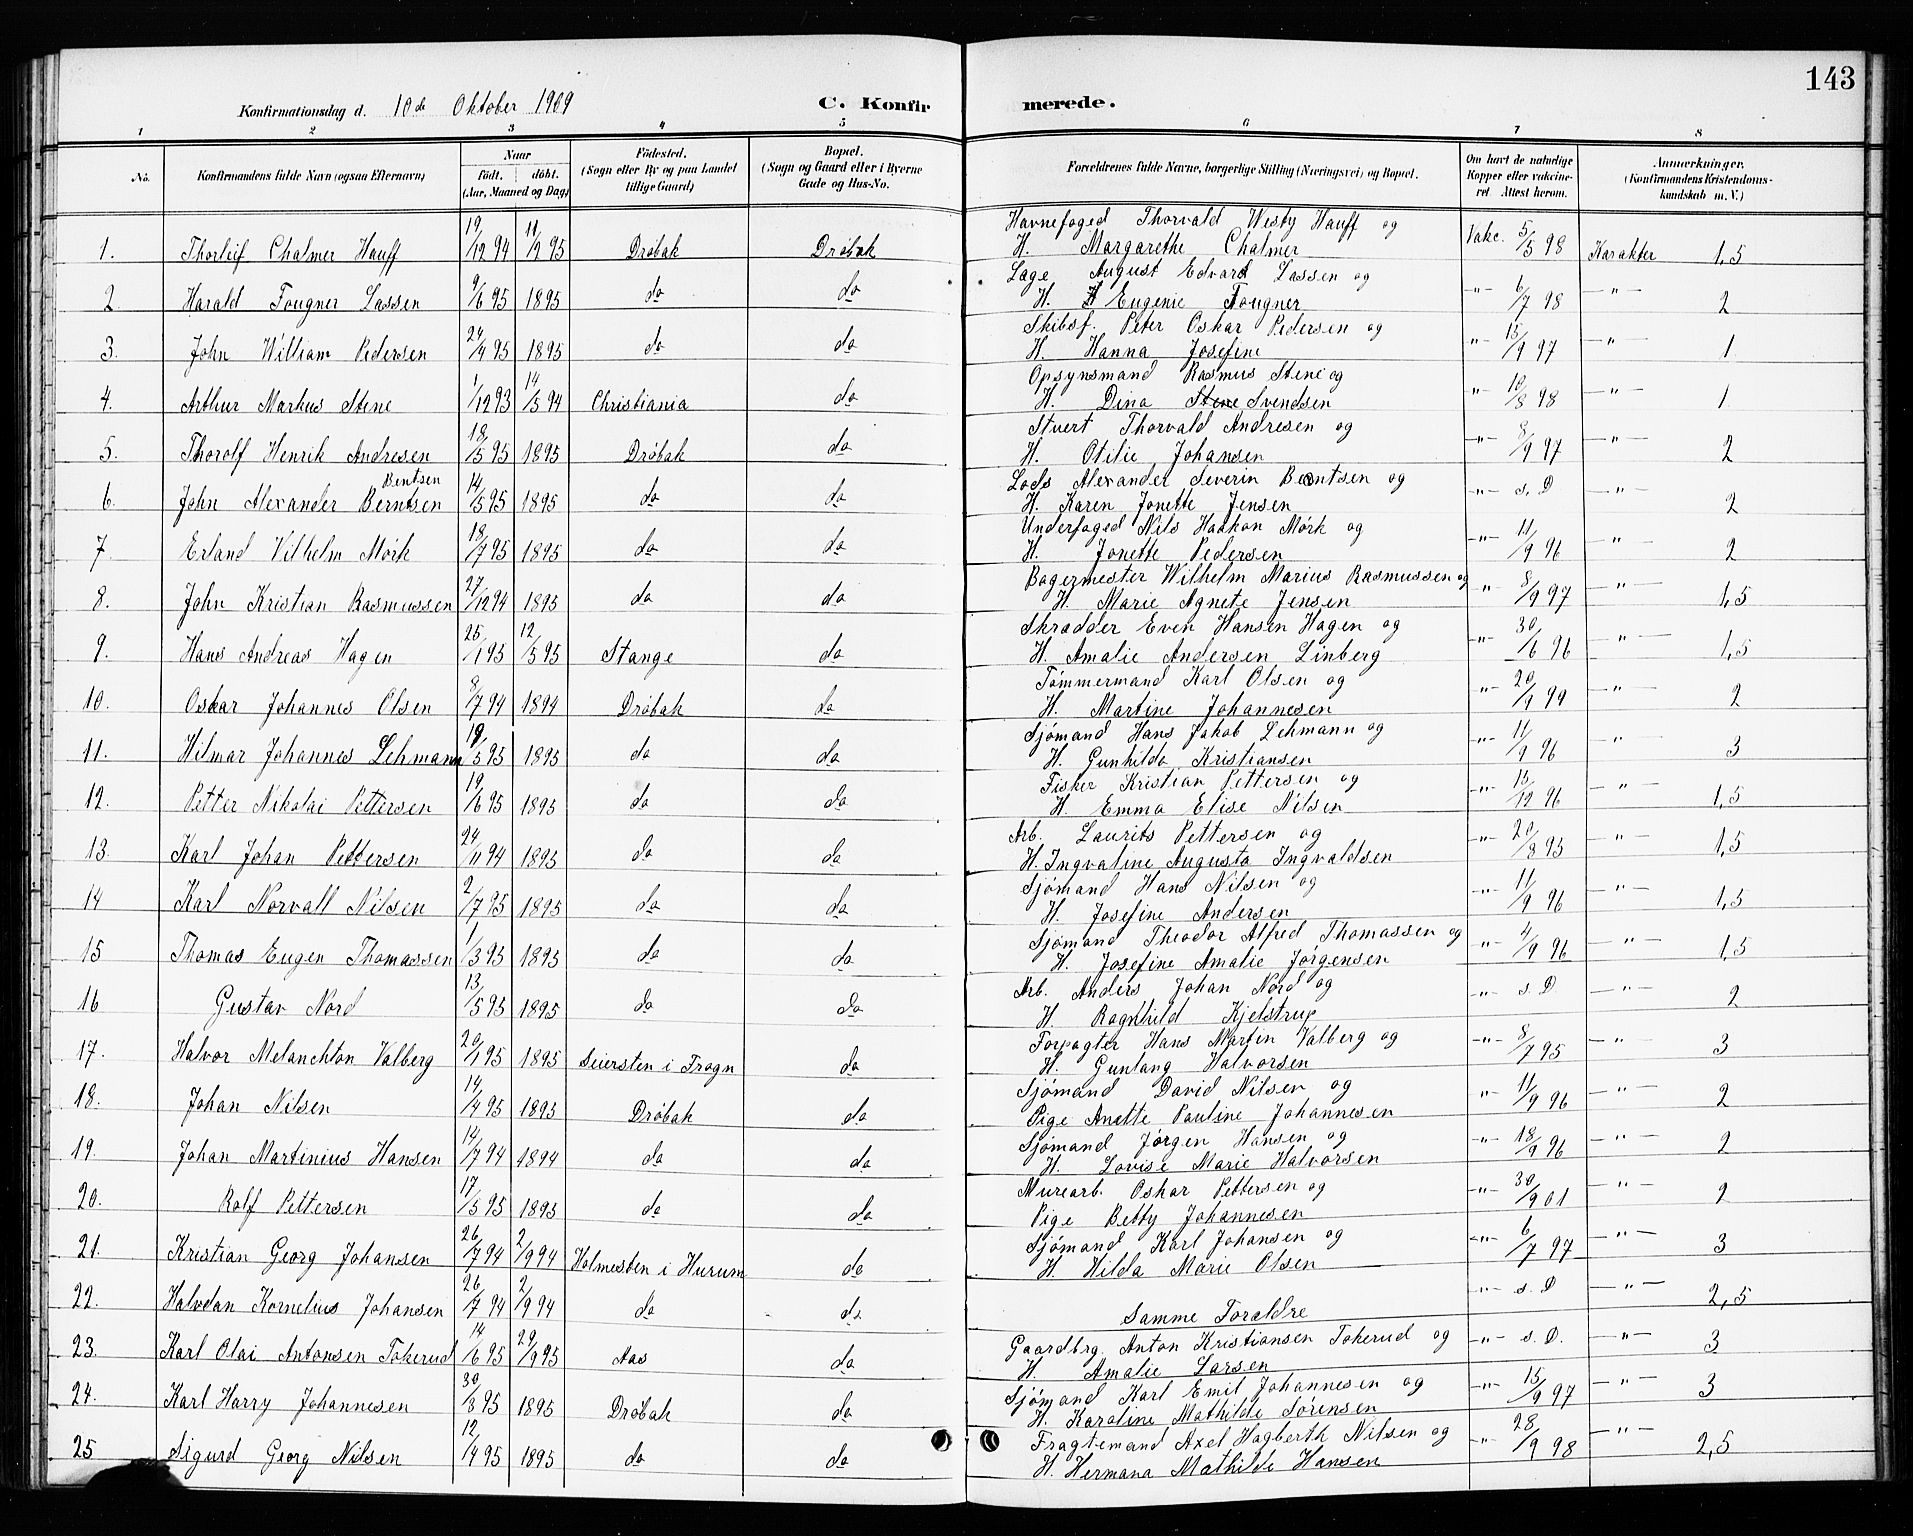 143
Konfirmationsdag d. 10de Oktober 1909 C. Konfirmerede.
1 2 3 4 5 6 7 8
No. Konfirmandens fulde Navn (ogsaa Efternavn) Naar født. døbt. (Aar, Maaned og Dag) Fødested. (Sogn eller By og paa Landet tillige Gaard) Bopæl. (Sogn og Gaard eller i Byerne Gade og Hus-No. Forældrenes fulde Navne, borgerlige Stilling (Næringsvei) og Bopæl. Om havt de naturlige Kopper eller vakcineret. Attest herom. Anmærkninger. (Konfirmandens Kristendomskundskab m. V.)
1. Thorleif Chalmer Hauff 19/12 94 11/2 95 Drøbak Drøbak Havnefoged Thorvald Wesby Hauff og
H. Margarethe Chalmer Vakc. 5/5 98 Karakter 1,5
2 Harald Fougner Lassen 9/6 95 1895 do do Læge August Edvard Lassen og
H. Eugenie Fougner -"- 6/7 98 -"- 2
3. John William Pedersen 24/4 95 1895 do do Skibsf. Peter Oskar Pedersen og
H. Hanna Josefine -"- 15/9 97 -"- 1
4. Arthur Markus Stene 1/12 93 14/5 94 Christiania do Opsynsmand Rasmus Stene og
H. Dina Stene Svendsen -"- 10/8 98 -"- 1
5. Thorolf Henrik Andresen 18/5 95 1895 Drøbak do Stuert Thorvald Andresen og
H. Otilie Johansen -"- 8/9 97 -"- 2
Bentsen
6. John Alexander Berntsen 14/5 95 1895 do do Lods Alexander Severin Bentsen og
H. Karen Jonette Jensen -"- s. D -"- 2
7. Erland Vilhelm Mørk 18/7 95 1895 do do Underfoged Nils Haakon Mørk og
H. Jonette Pedersen -"- 11/9 96 -"- 2
8. John Kristian Rasmussen 27/12 94 1895 do do Bagermester Wilhelm Marius Rasmussen og
H. Marie Agnete Jensen -"- 8/9 97 -"- 1,5
9. Hans Andreas Hagen 25/1 95 12/5 95 Stange do Skrædder Even Hansen Hagen og
H. Amalie Andersen Linberg -"- 30/6 96 -"- 1,5
10. Oskar Johannes Olsen 8/7 94 1894 Drøbak do Tømmermand Karl Olsen og
H. Martine Johannesen -"- 20/9 99 -"- 2
11. Hilmar Johannes Lehmann 19/5 95 1895 do do Sjømand Hans Jakob Lehmann og
H. Gunhilda Kristiansen -"- 11/9 96 -"- 3
12. Petter Nikolai Pettersen 19/6 95 1895 do do Fisker Kristian Pettersen og
H. Emma Elise Nilsen -"- 15/12 96 -"- 1,5
13. Karl Johan Pettersen 24/11 94 1895 do do Arb. Laurits Pettersen og
H. Ingvaline Augusta Ingvaldsen -"- 20/8 95 -"- 1,5
14 Karl Norvall Nilsen 2/7 95 1895 do do Sjømand Hans Nilsen og
H. Josefine Andersen -"- 11/9 96 -"- 1,5
15 Thomas Eugen Thomassen 1/3 95 1895 do do Sjømand Theodor Alfred Thomassen og
H. Josefine Amalie Jørgensen -"- 4/9 96 -"- 1,5
16 Gustav Nord 13/5 95 1895 do do Arb. Anders Johan Nord og
H. Ragnhild Kjelstrup -"- s. D -"- 2
17. Halvor Melanchton Valberg 20/1 95 1895 Seiersten i Frogn do Forpagter Hans Martin Valberg og
H. Gunlang Halvorsen -"- 8/7 95 -"- 3
18. Johan Nilsen 14/4 95 1895 Drøbak do Sjømand David Nilsen og
Pige Anette Pauline Johannesen -"- 11/9 96 -"- 2
19. Johan Martinius Hansen 14/7 94 1894 do do Sjømand Jørgen Hansen og
H. Lovise Marie Halvorsen -"- 18/9 96 -"- 2
20. Rolf Pettersen 17/5 95 1895 do do Murearb. Oskar Pettersen og
Pige Betty Johannesen -"- 30/9 01 -"- 2
21. Kristian Georg Johansen 26/7 94 2/9 94 Holmesten i Hurum do Sjømand Karl Johansen og
H. Hilda Marie Olsen -"- 6/7 97 -"- 3
22. Halvdan Kornelius Johansen 26/7 94 2/9 94 do do Samme Foraldre -"- s. D -"- 2,5
23. Karl Olai Antonsen Tokerud 14/6 95 29/9 95 Aas do Gaardbrg. Anton Kristiansen Tokerud og
H. Amalie Larsen -"- s. D. -"- 3
24. Karl Harry Johannesen 30/3 95 1895 Drøbak do Sjømand Karl Emil Johannesen og
H. Karoline Mathilde Sørensen -"- 15/9 97 -"- 3
25 Sigurd Georg Nilsen 12/4 95 1895 do do Fragtemand Axel Hagberth Nilsen og
H. Hermana Mathilde Hansen -"- 28/9 98 -"- 2,5